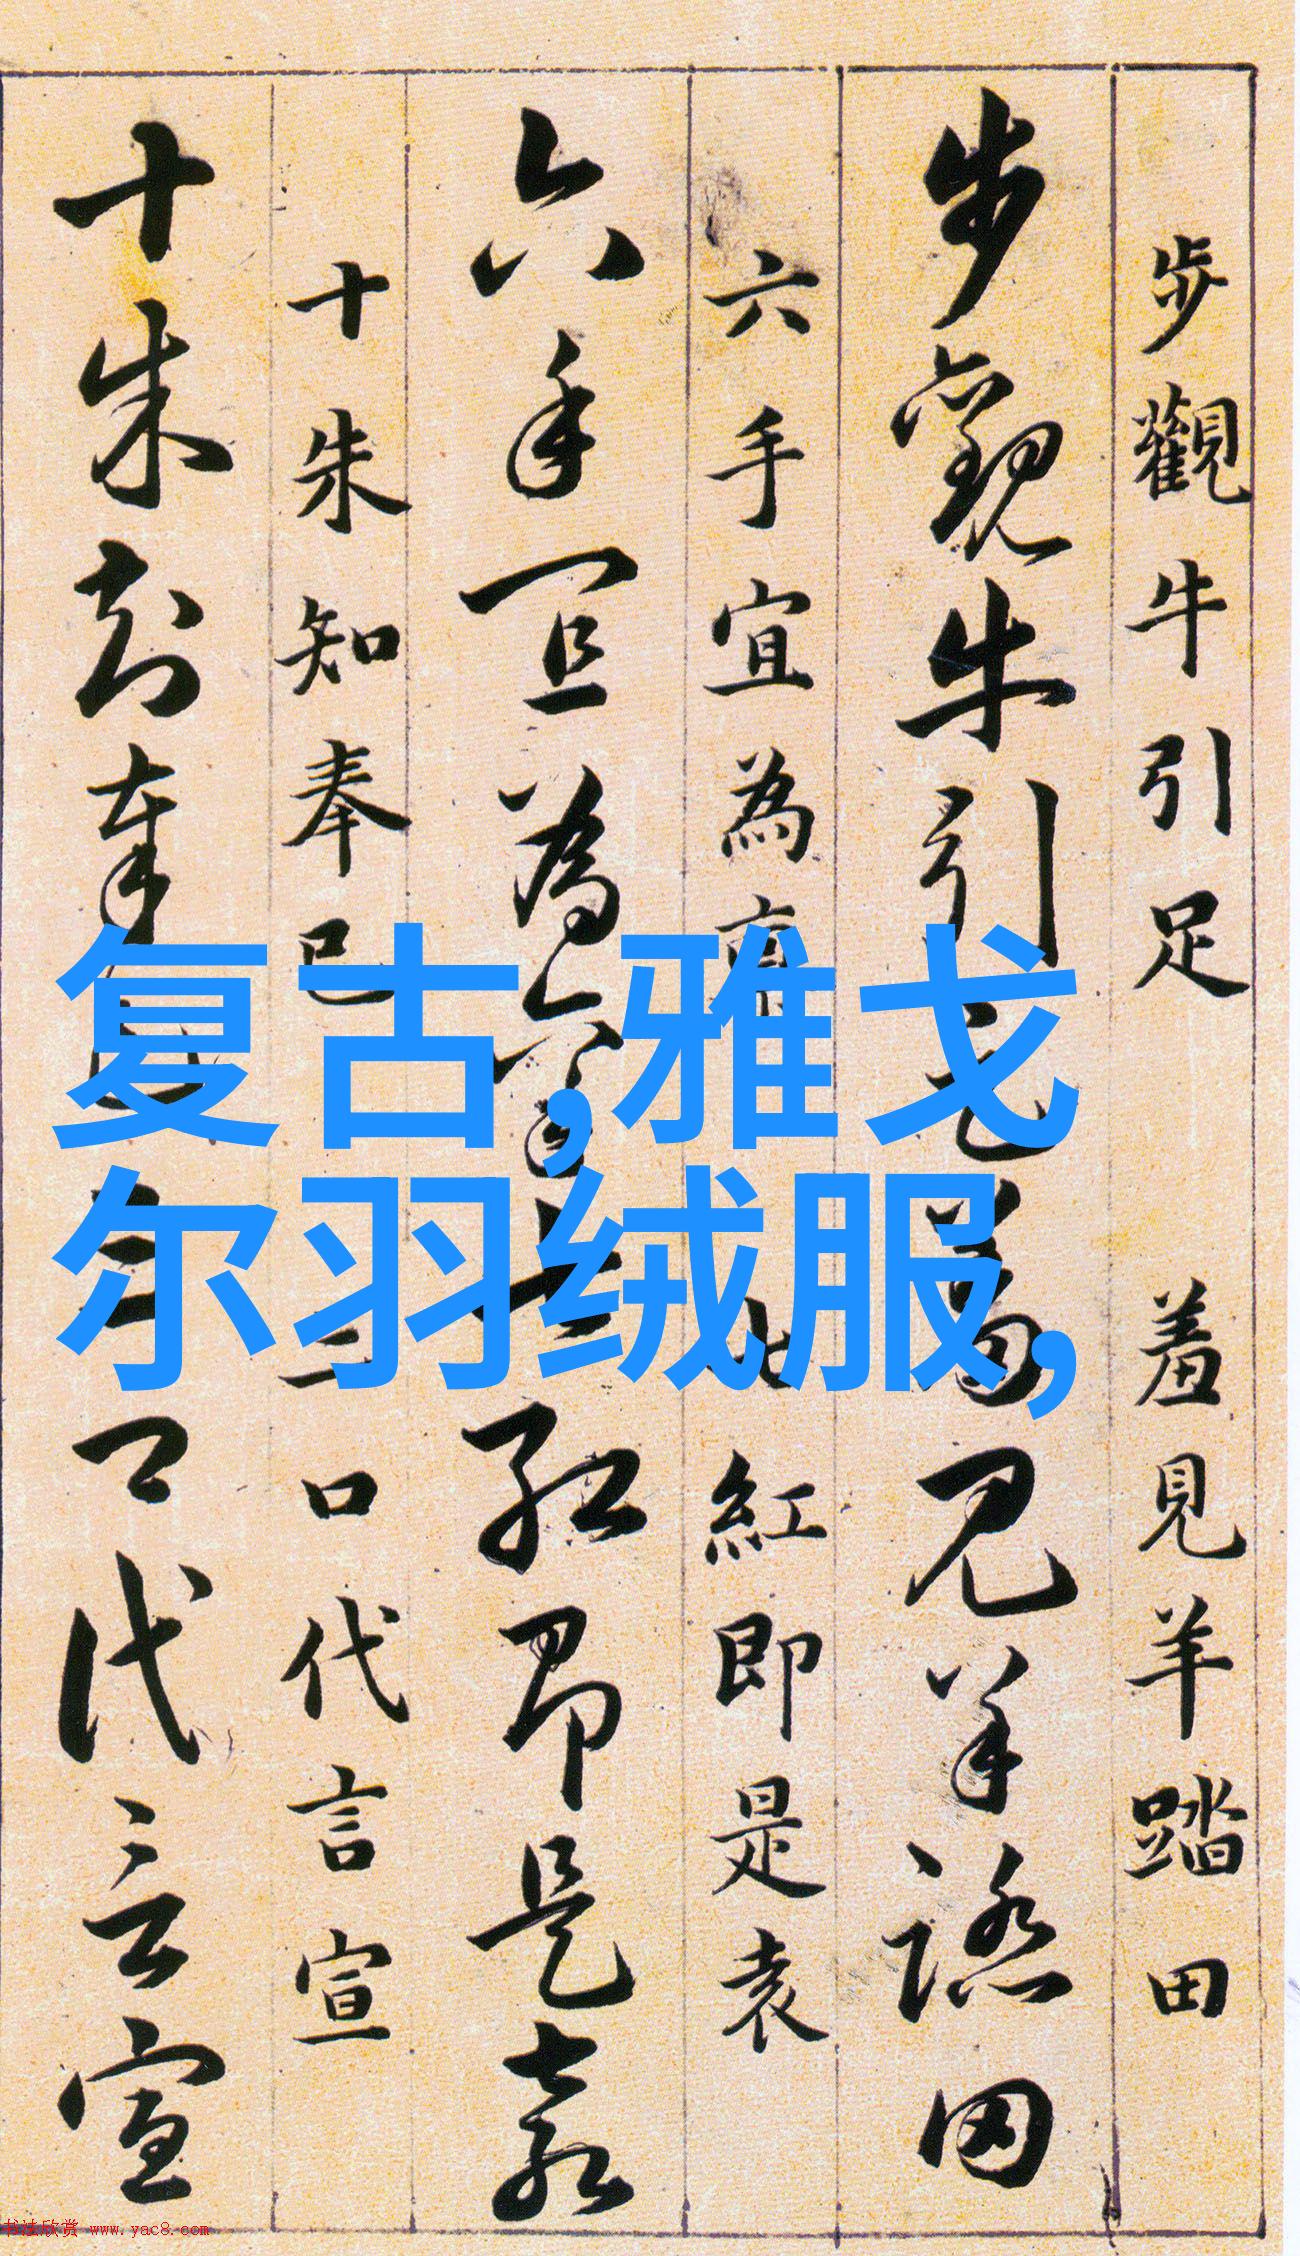 步觀牛引足羞見羊踏田
步觀牛引足羞見羊踏田
六手宜為七紅即是袁
六手宜為七紅即是袁
十朱知奉己三口代言宣
十朱知奉三口代言宣
复古,雅戈
尔羽绒服,
书法欣赏 www.yac8.com